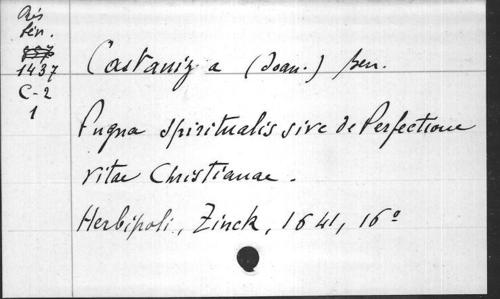 Ris
Sén.
997
1437
C-2
1
Castaniza (Joan.) Ben.
Pugna spiritualis sive de Perfectione
vitae Christianae.
Herbipoli, Zinck, 1641, 16°